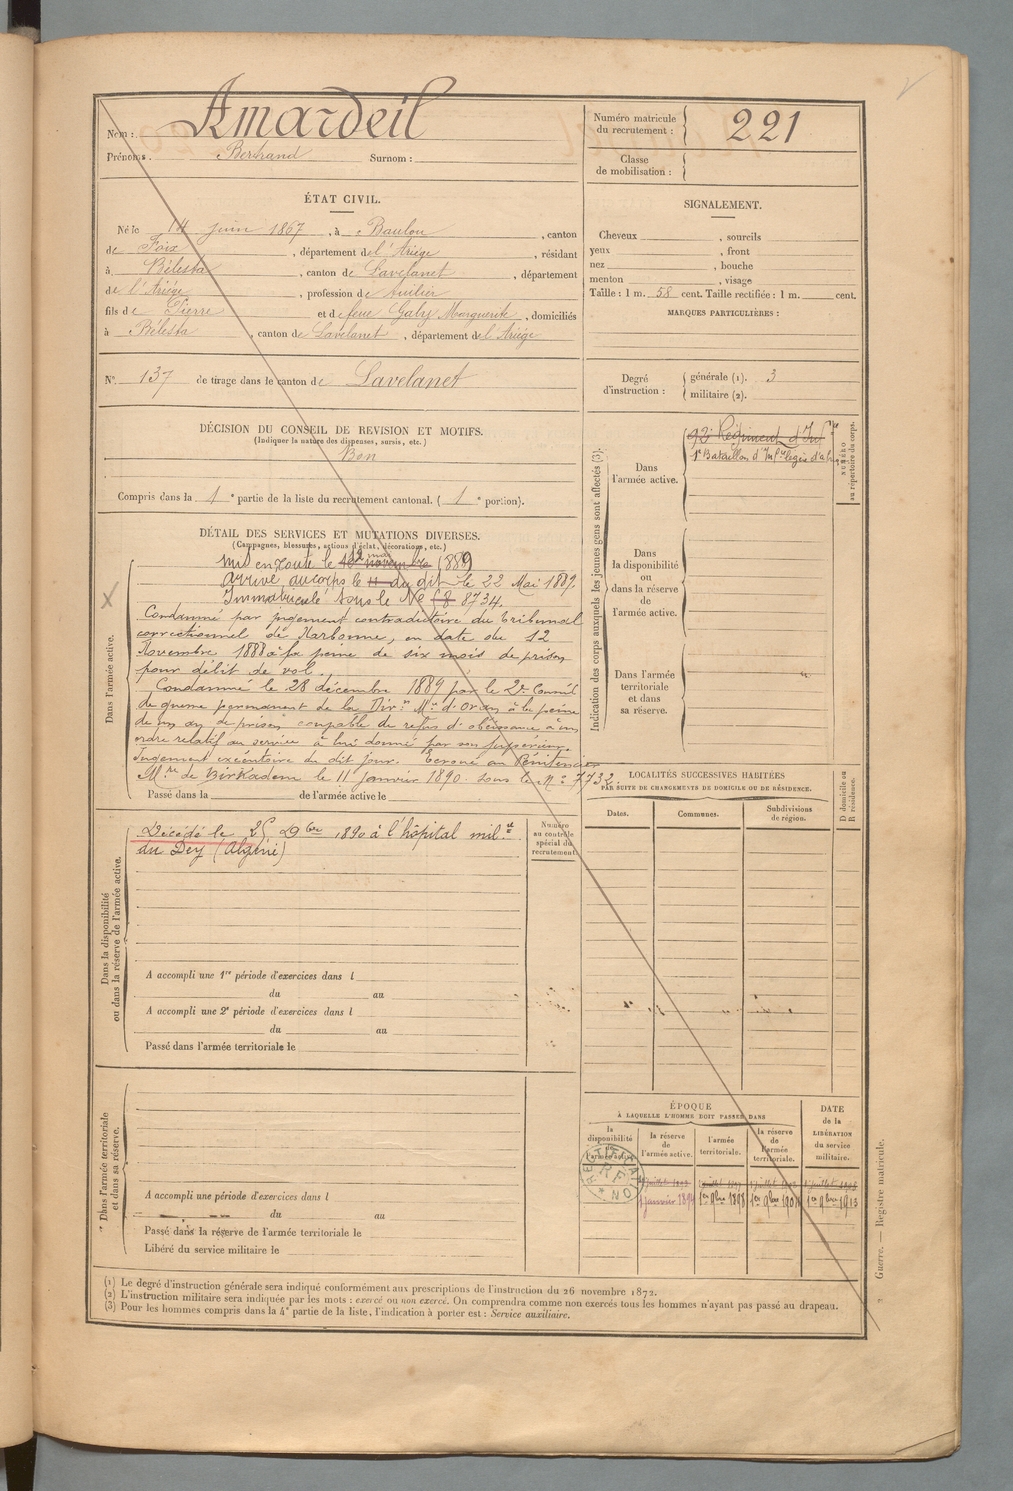 Nom : Amardeil
Prénoms : Bertrand Surnom :
Numéro matricule du recrutement : 221
Classe de mobilisation :
ÉTAT CIVIL.
Né le 14 juin 1867, à Baulou, canton
de Foix, département de l'Ariège, résidant
à Bélesta, canton de Lavelanet, département
de l'Ariège, profession de
fils de Pierre et de feue Galy Marguerite, domiciliés
à Bélesta, canton de Lavelanet, département de l'Ariège
SIGNALEMENT.
Cheveux , sourcils
yeux , front
nez , bouche
menton , visage
Taille : 1 m. 58 cent. Taille rectifiée : 1 m. cent.
MARQUES PARTICULIÈRES :
N° 137 de tirage dans le canton de Lavelanet
Degré d'instruction : générale (1). 3
militaire (2).
DÉCISION DU CONSEIL DE REVISION ET MOTIFS.
(Indiquer la nature des dispenses, sursis, etc.)
Bon
Compris dans la 1e partie de la liste du recrutement cantonal. (1e portion).
DÉTAIL DES SERVICES ET MUTATIONS DIVERSES.
(Campagnes, blessures, actions d'éclat, décorations, etc.)
Dans l'armée active.
Mis en route le 12 mai novembre 1889
Arrivé au corps le 11 du dit le 22 Mai 1889.
Immatriculé sous le N° 8734.
Condamné par jugement contradictoire du Tribunal
correctionnel de Narbonne, en date du 12
Novembre 1888 à la peine de six mois de prison
pour délit de vol.
Condamné le 28 décembre 1889 par le 2e Conseil
de guerre permanent de la Dion Mre d'Oran à la peine
de un an de prison coupable de refus d'obéissance à un
ordre relatif au service à lui donné par son supérieur.
Jugement exécutoire du dit jour. Ecroué au Pénitencier
Mre de Birkadem le 11 janvier 1890 sous le N° 7732.
Passé dans la de l'armée active le
Indication des corps auxquels les jeunes gens sont affectés (3).
Dans l'armée active.
92e Régiment d'Infie
1er Bataillon d'Infie légère d'af
NUMÉRO au répertoire du corps.
Dans la disponibilité ou dans la réserve de l'armée active.
Dans l'armée territoriale et dans sa réserve.
Dans la disponibilité ou dans la réserve de l'armée active.
Décédé le 25 9bre 1890 à l'hôpital mil.re
du Dey (Algérie)
Numéro au contrôle spécial du recrutement.
A accompli une 1re période d'exercices dans l
du au
A accompli une 2e période d'exercices dans l
du au
Passé dans l'armée territoriale le
LOCALITÉS SUCCESSIVES HABITÉES
PAR SUITE DE CHANGEMENTS DE DOMICILE OU DE RÉSIDENCE.
Dates. Communes. Subdivisions de région.
D domicile ou R résidence.
Dans l'armée territoriale et dans sa réserve.
A accompli une période d'exercices dans l
du au
Passé dans la réserve de l'armée territoriale le
Libéré du service militaire le
ÉPOQUE
À LAQUELLE L'HOMME DOIT PASSER DANS
la disponibilité la réserve de l'armée active. l'armée territoriale. la réserve de l'armée territoriale.
DATE de la LIBÉRATION du service militaire.
1 janvier 189 1er 9bre 1898 1er 9bre 190 1er 9bre 1913
RECTIFICATION
RF
(1) Le degré d'instruction générale sera indiqué conformément aux prescriptions de l'instruction du 26 novembre 1872.
(2) L'instruction militaire sera indiquée par les mots : exercé ou non exercé. On comprendra comme non exercés tous les hommes n'ayant pas passé au drapeau.
(3) Pour les hommes compris dans la 4e partie de la liste, l'indication à porter est : Service auxiliaire.
Guerre. — Registre matricule.